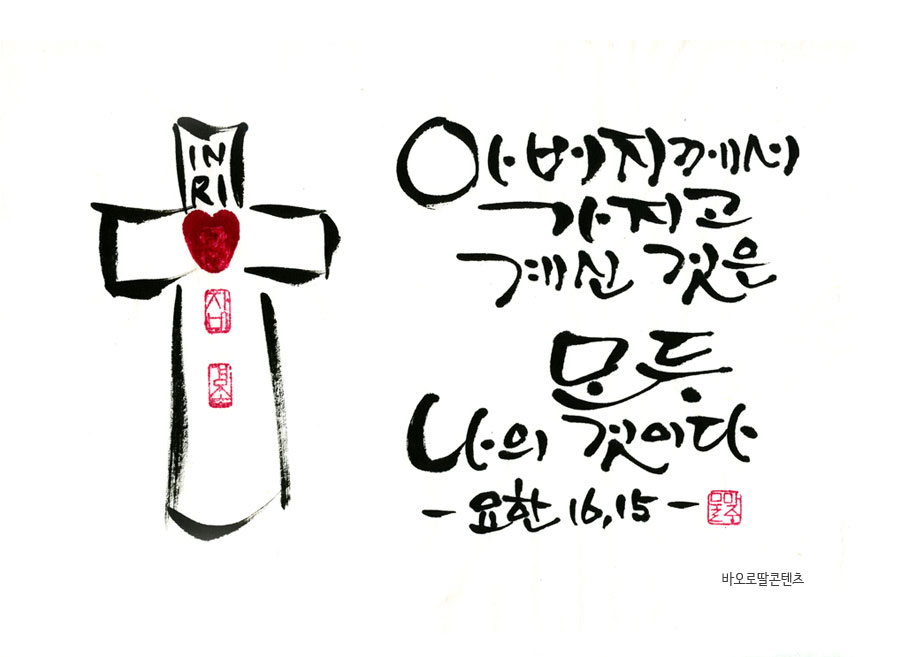 IN
RI
자비
아버지께서
가지고
계신 것은
모두
나의 것이다
- 요한 16,15 -
바오로딸콘텐츠